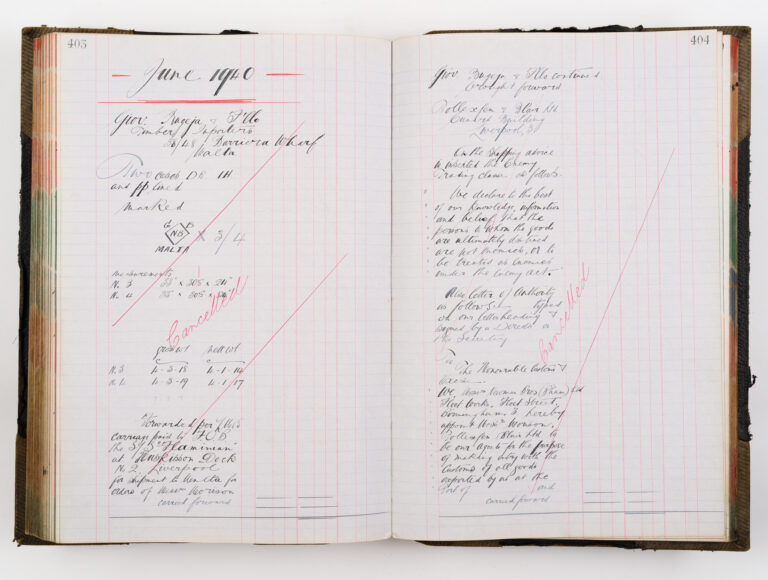 403
June 1940
Giov: Bugeja & Fllo
Timber Importers
Barriera Wharf
Malta
Two cases DB 1H
and pp lined
marked
G B
NB
MALTA
X 3/4
measurements
N. 3
N. 4
Cancelled
gross wt nett wt
N. 3 4-3-18 4-1-14
N. 4 4-3-19 4-1-17
Forwarded per LMS
carriage paid to FOB
the S/S "Flaminian"
at Huskisson Dock
N. 2, Liverpool
for shipment to Malta for
orders of Messrs
carried forward
404
Giov. Bugeja & Fllo continued
brought forward
Blair Ltd
Cunard Building
Liverpool, 3
On the shipping advice
is inserted the Enemy
Trading clause as follows:
We declare to the best
of our knowledge, information
and belief, that the
persons to whom the goods
are ultimately destined
are not enemies, or to
be treated as enemies
under the Enemy Act.
Also Letter of Authority
as follows typed
on our letterheading &
signed by a Director or
the Secretary
Cancelled
To
The Honourable Customs &
Excise
We, Messrs Bros (Bham) Ltd
Fleet Works, Fleet Street,
Birmingham 3 hereby
appoint Messrs
Blair Ltd to
be our agents for the purpose
of making entry with the
Customs of all goods
exported by us at the
Port of and
carried forward